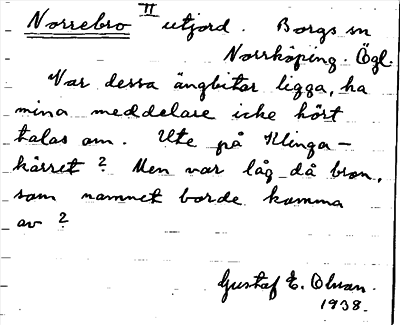 Norrebro II utjord. Borgs sn
Norrköping. Ögl.
Var dessa ängbitar ligga, ha
mina meddelare icke hört
talas om. Ute på Klinga-
kärret? Men var låg då bron,
som namnet borde komma
av?
Gustaf E. Olson.
1938.